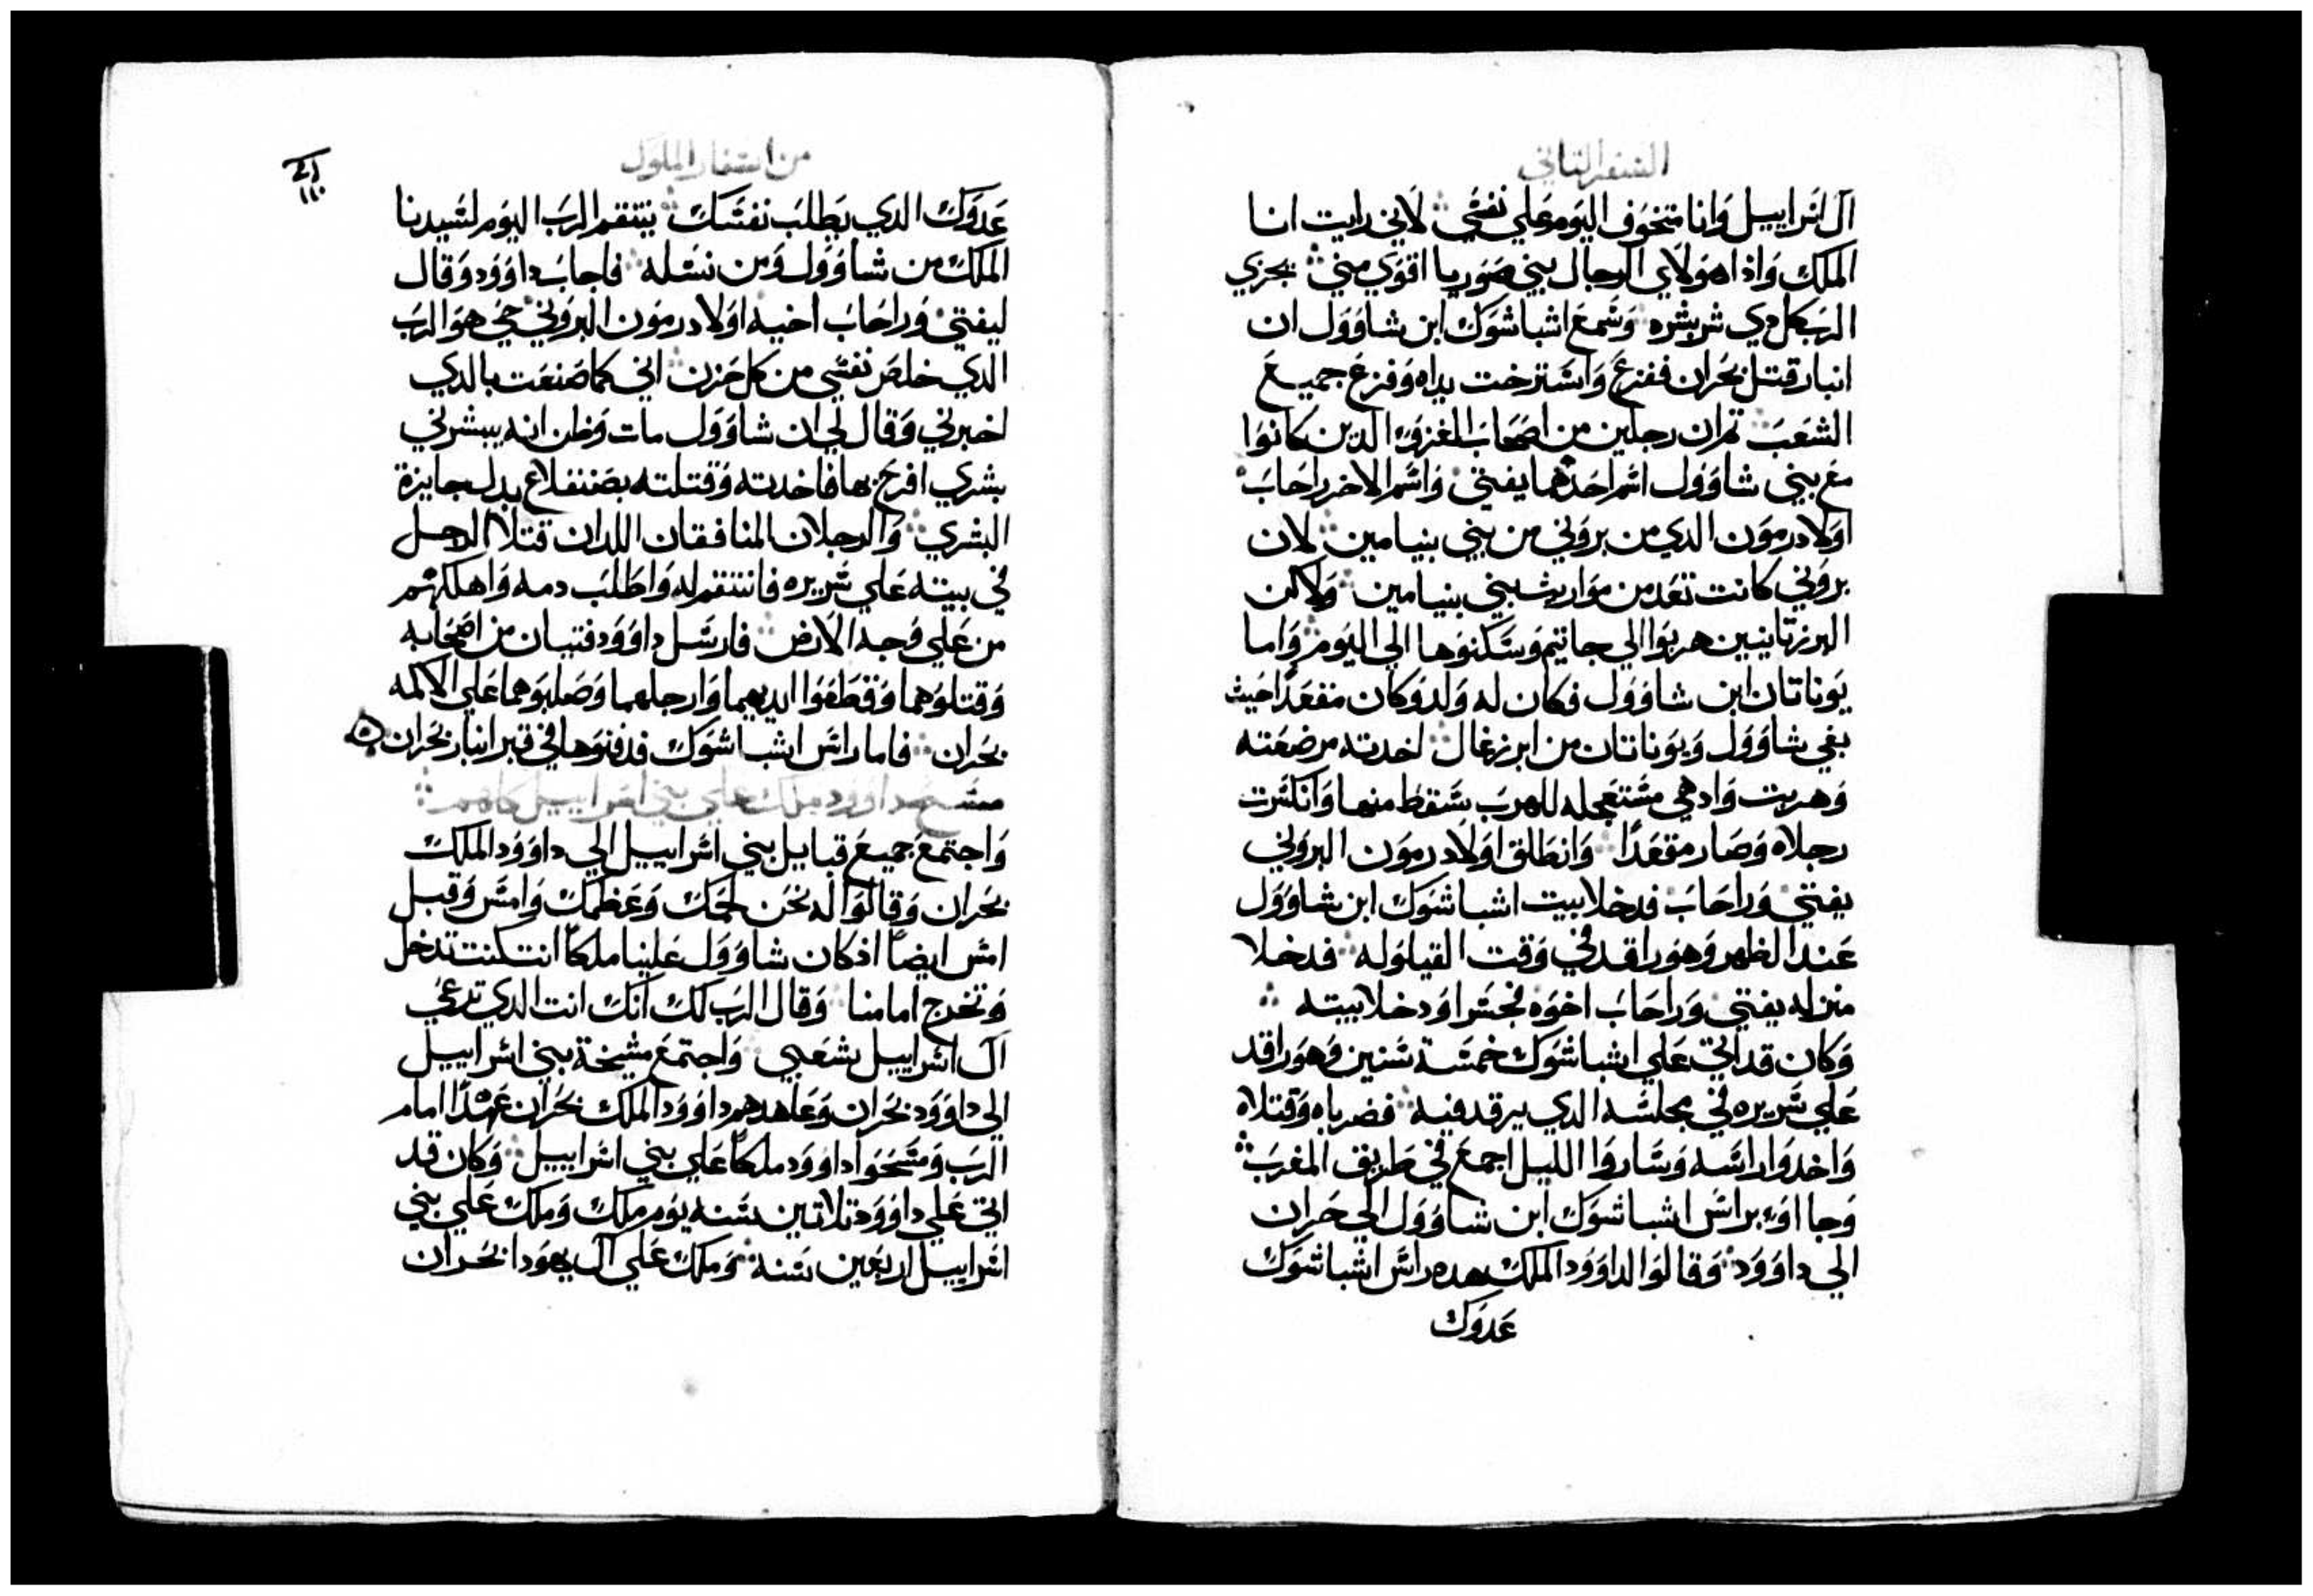 السفر الثاني
ال اسراييل وانا متخوف اليوم علي نفسي لاني رايت انا
الملك واذا هولاي الرجال بني صوريا اقوي مني يجزي
الرب كل دي شر بشره وسمع اشباشوك ابن شاوول ان
انبار قتل بحران ففزع واسترخت يداه وفزع جميع
الشعب تم ان رجلين من اصحاب الغزو الدين كانوا
مع بني شاوول اسم احدهما يفتي واسم الاخر راحاب
اولاد رمون الدي من بروني من بني بنيامين لان
بروني كانت تعد من مواريث بني بنيامين ولاكن
البرزتاينيين هربوا الي جاتيم وسكنوها الي اليوم واما
يوناتان ابن شاوول فكان له ولد وكان مقعدا حيث
بغي شاوول ويوناتان من ابرزغال اخدته مرضعته
وهربت واد هي مستعجله للهرب سقط منها وانكسرت
رجلاه وصار مقعدا وانطلق اولاد رمون البروني
يفتي وراحاب فدخلا بيت اشباشوك ابن شاوول
عند الظهر وهو راقد في وقت القيلوله فدخلا
منزله يفتي وراحاب اخوه نجسرا ودخلا بيته
وكان قد اتي علي اشباشوك خمسة سنين وهو راقد
علي سريره في مجلسه الدي يرقد فيه فضرباه وقتلاه
واخدوا راسه وساروا الليل اجمع في طريق المغرب
وجااو براس اشباشوك ابن شاوول الي حران
الي داوود وقالوا لداوود الملك هده راس اشباشوك
عدوك
من اسفار الملوك
عدوك الدي يطلب نفسك ينتقم الرب اليوم لسيدنا
الملك من شاوول ومن نسله فاجاب داوود وقال
ليفتي وراحاب اخيه اولاد رمون البروني حي هو الرب
الدي خلص نفسي من كل حزن اني كما صنعت بالدي
اخبرني وقال لي ان شاوول مات وظن انه يبشرني
بشري افرح بها فاخدته وقتلته بصنفلاع بدل جايزة
البشري والرجلان المنافقان اللدان قتلا الرجل
في بيته علي سريره فانتقم له واطلب دمه واهلكهم
من علي وجه الارض فارسل داوود فتيان من اصحابه
وقتلوهما وقطعوا ايديهما وارجلهما وصلبوهما علي الاكمه
بحران فاما راس اشباشوك فدفنوها في قبر انبار بحران
مسح داوود ملك علي بني اسراييل كلهم
واجتمع جميع قبايل بني اسراييل الي داوود الملك
بحران وقالوا له نحن لحمك وعظمك وامس وقبل
امس ايضا اذ كان شاوول علينا ملكا انت كنت تدخل
وتخرج امامنا وقال الرب لك انك انت الدي ترعي
ال اسراييل شعبي واجتمع مشيخة بني اسراييل
الي داوود بحران وعاهدهم داوود الملك بحران عهدا امام
الرب ومسحوا داوود ملكا علي بني اسراييل وكان قد
اتي علي داوود تلاتين سنه يوم ملك وملك علي بني
اسراييل اربعين سنة وملك علي ال يهودا بحران